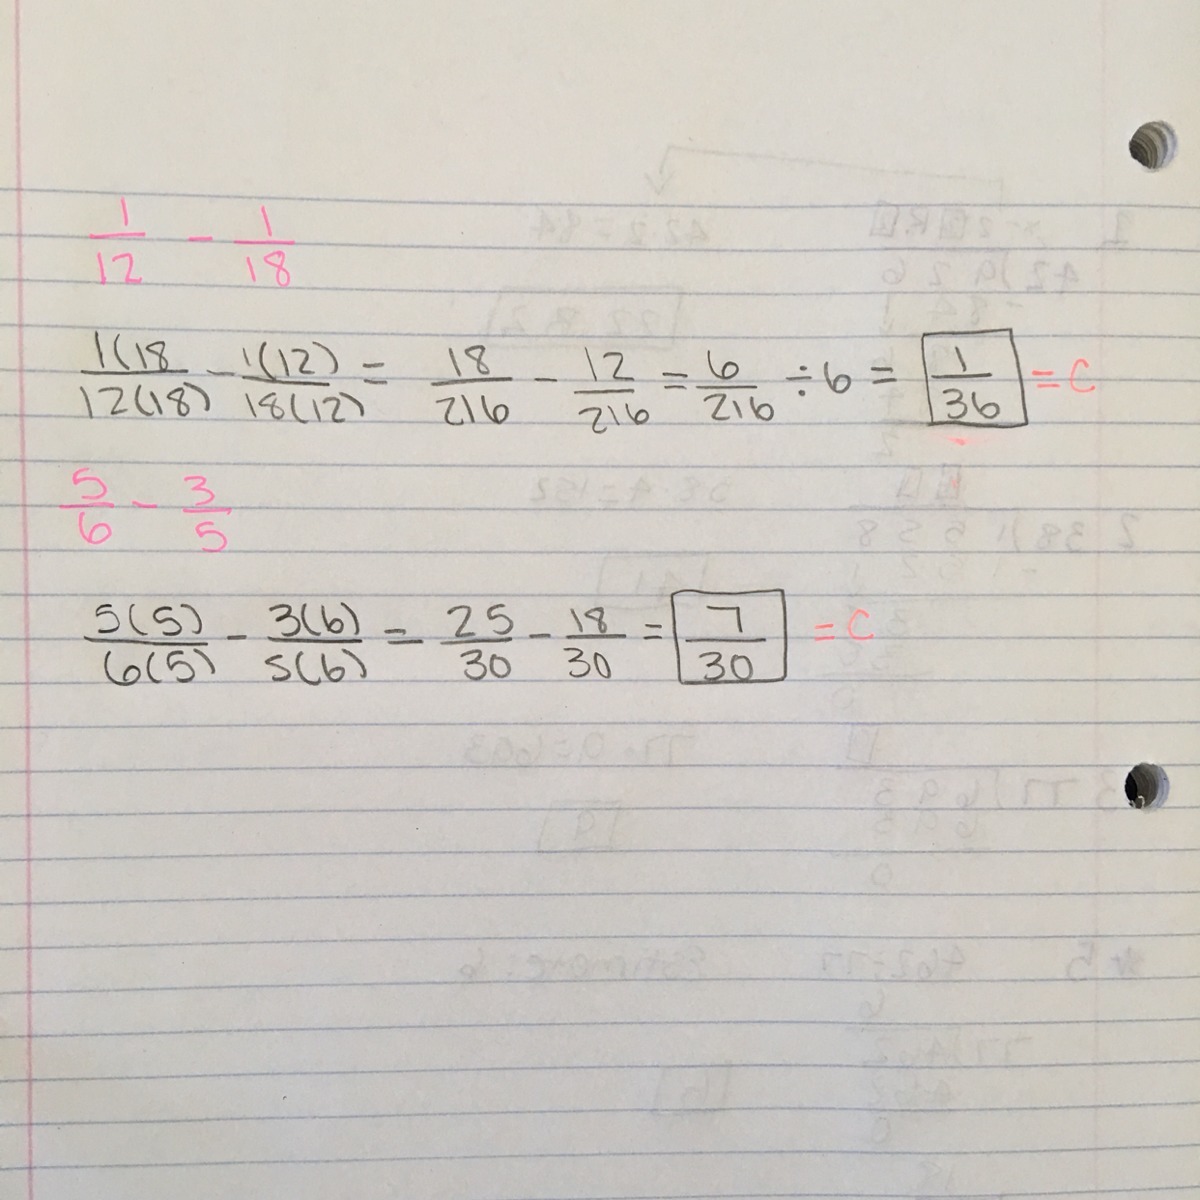 1/12 - 1/18
1(18/12(18) - 1(12)/18(12) = 18/216 - 12/216 = 6/216 ÷ 6 = 1/36 = C
5/6 - 3/5
5(5)/6(5) - 3(6)/5(6) = 25/30 - 18/30 = 7/30 = C